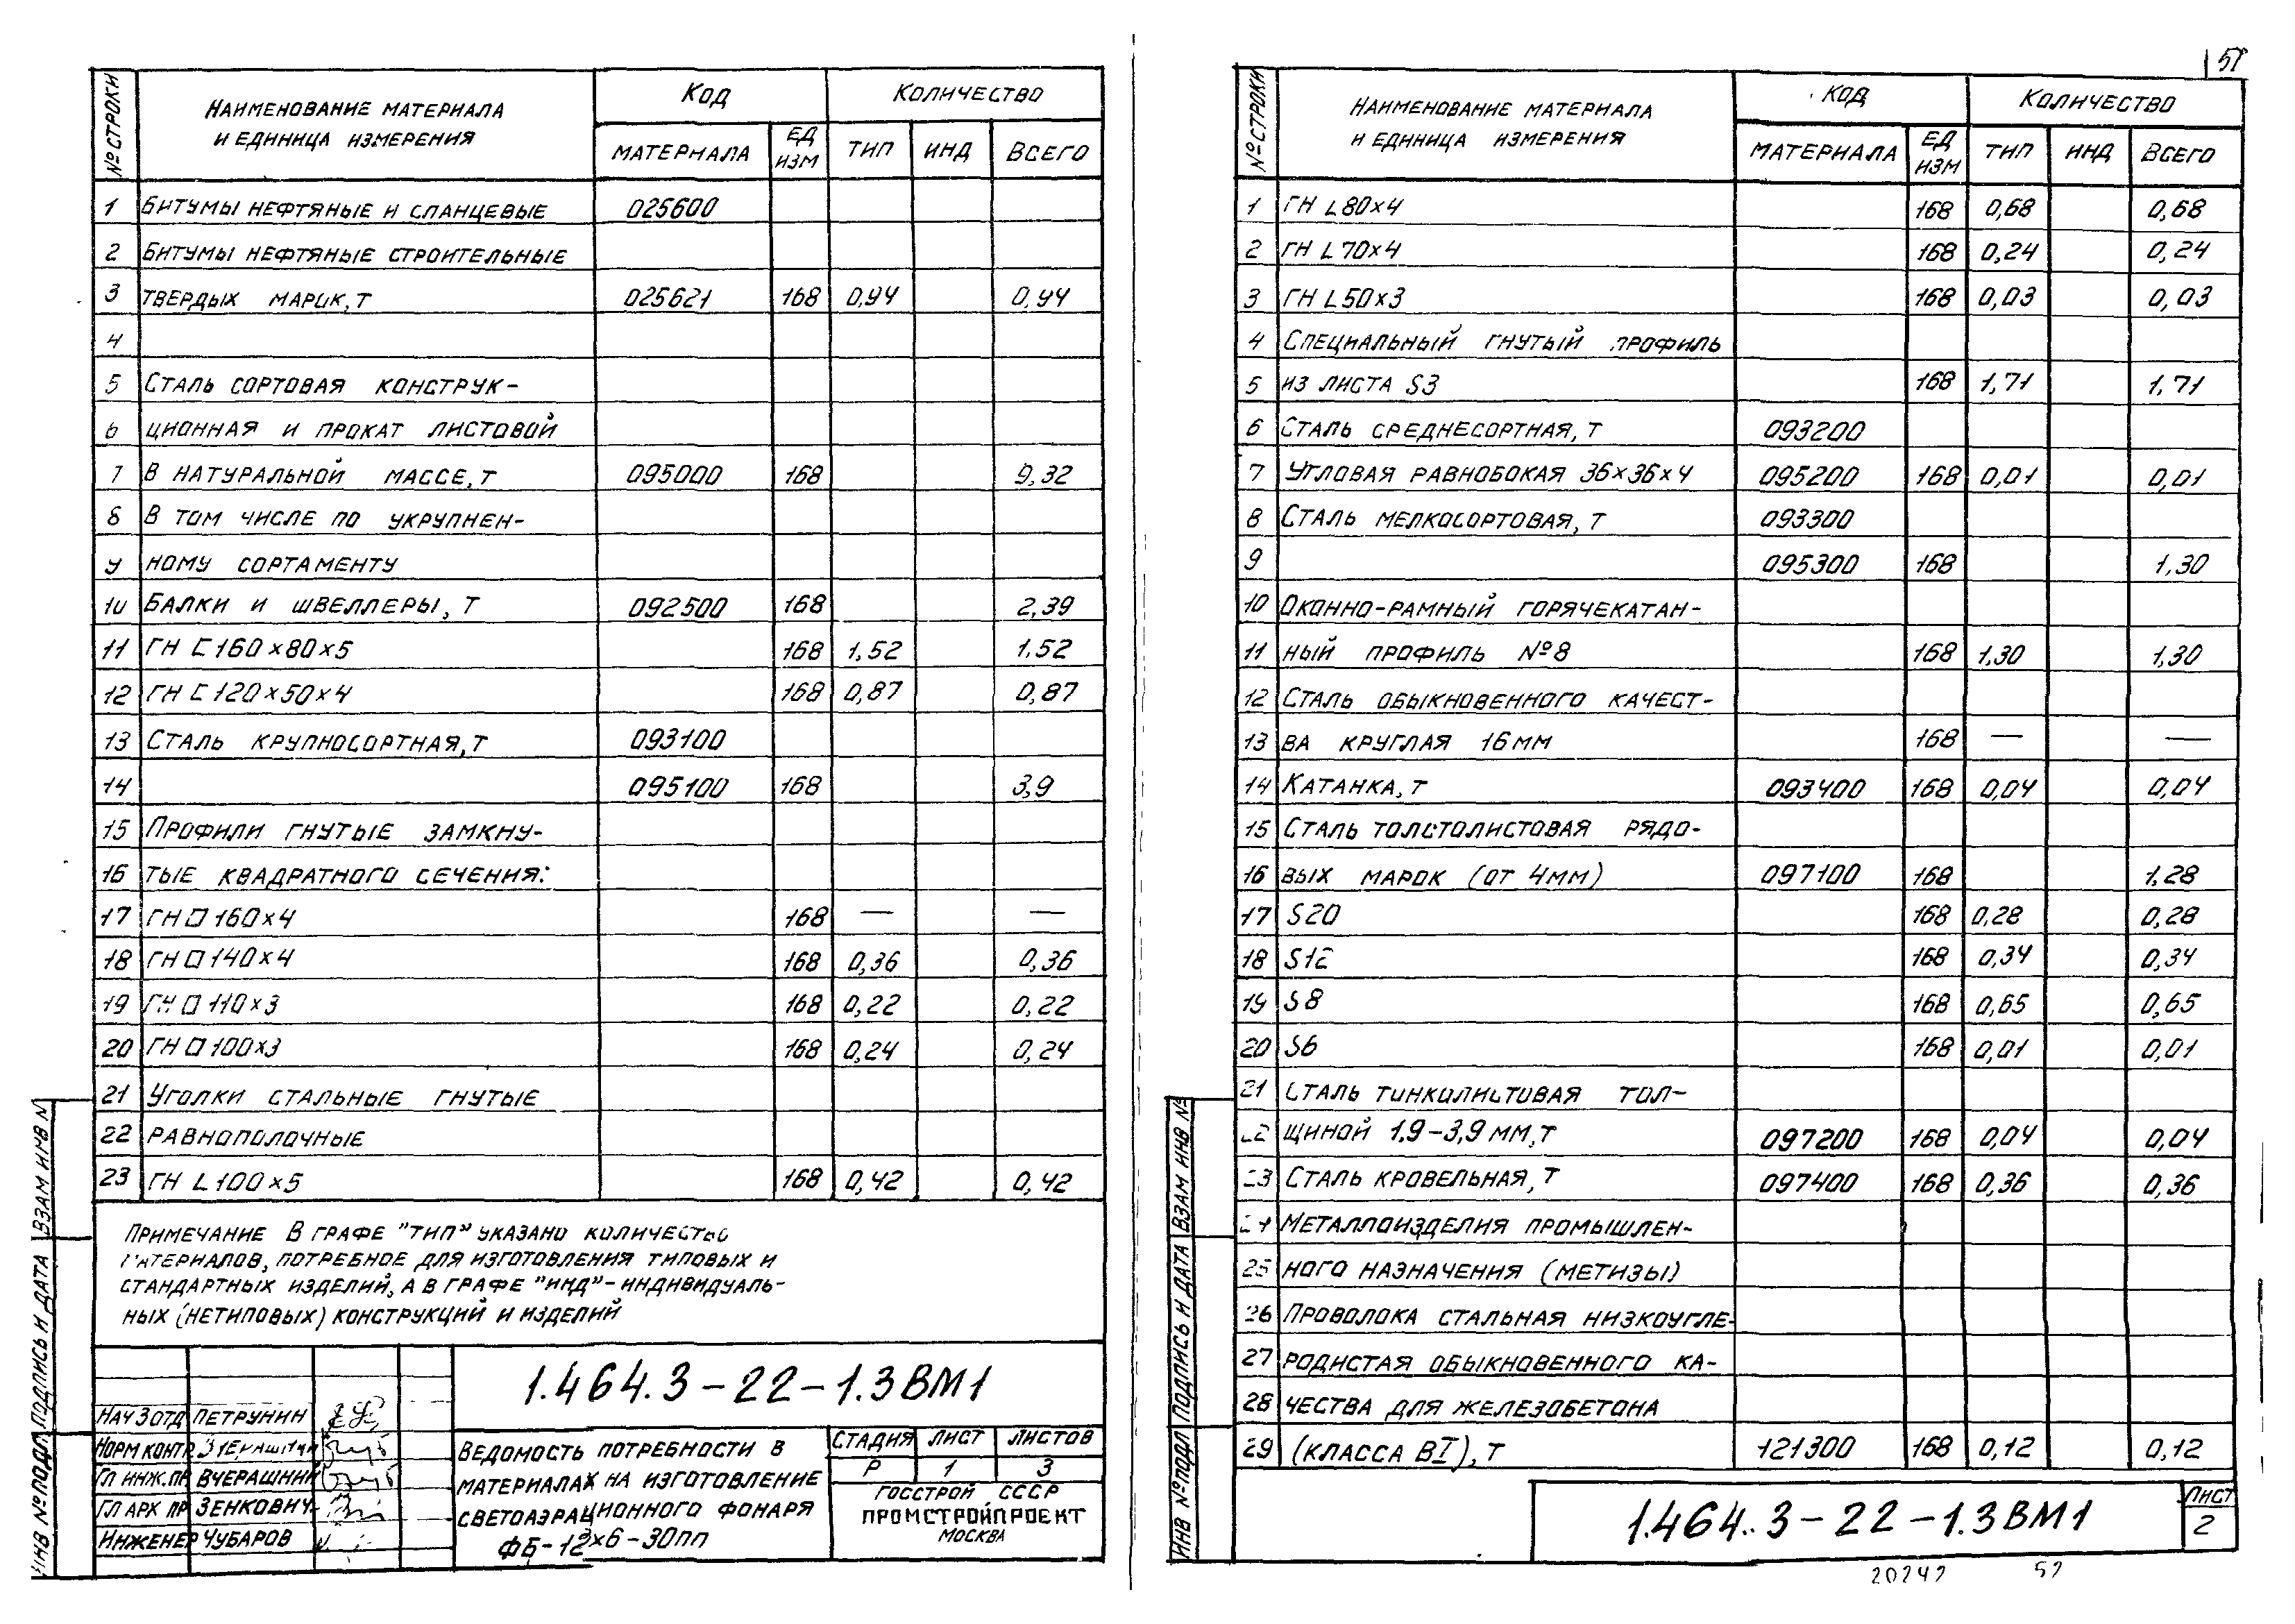 № СТРОКИ НАИМЕНОВАНИЕ МАТЕРИАЛА И ЕДИНИЦА ИЗМЕРЕНИЯ КОД КОЛИЧЕСТВО
МАТЕРИАЛА ЕД ИЗМ ТИП ИНД ВСЕГО
1 БИТУМЫ НЕФТЯНЫЕ И СЛАНЦЕВЫЕ 025600
2 БИТУМЫ НЕФТЯНЫЕ СТРОИТЕЛЬНЫЕ
3 ТВЕРДЫХ МАРОК, Т 025621 168 0,94 0,94
4
5 СТАЛЬ СОРТОВАЯ КОНСТРУК-
6 ЦИОННАЯ И ПРОКАТ ЛИСТОВОЙ
7 В НАТУРАЛЬНОЙ МАССЕ, Т 095000 168 9,32
8 В ТОМ ЧИСЛЕ ПО УКРУПНЕН-
9 НОМУ СОРТАМЕНТУ
10 БАЛКИ И ШВЕЛЛЕРЫ, Т 092500 168 2,39
11 ГН [ 160×80×5 168 1,52 1,52
12 ГН [ 120×50×4 168 0,87 0,87
13 СТАЛЬ КРУПНОСОРТНАЯ, Т 093100
14 095100 168 3,9
15 ПРОФИЛИ ГНУТЫЕ ЗАМКНУ-
16 ТЫЕ КВАДРАТНОГО СЕЧЕНИЯ:
17 ГН □ 160×4 168 — —
18 ГН □ 140×4 168 0,36 0,36
19 ГН □ 110×3 168 0,22 0,22
20 ГН □ 100×3 168 0,24 0,24
21 УГОЛКИ СТАЛЬНЫЕ ГНУТЫЕ
22 РАВНОПОЛОЧНЫЕ
23 ГН L 100×5 168 0,42 0,42
ПРИМЕЧАНИЕ В ГРАФЕ "ТИП" УКАЗАНО КОЛИЧЕСТВО
МАТЕРИАЛОВ, ПОТРЕБНОЕ ДЛЯ ИЗГОТОВЛЕНИЯ ТИПОВЫХ И
СТАНДАРТНЫХ ИЗДЕЛИЙ, А В ГРАФЕ "ИНД" - ИНДИВИДУАЛЬ-
НЫХ (НЕТИПОВЫХ) КОНСТРУКЦИЙ И ИЗДЕЛИЙ
1.464.3-22-1.3ВМ1
НАЧ 3 ОТД ПЕТРУНИН
НОРМ КОНТР
ГЛ ИНЖ. ПР ВЧЕРАШНИН
ГЛ АРХ ПР ЗЕНКОВИЧ
ИНЖЕНЕР ЧУБАРОВ
ВЕДОМОСТЬ ПОТРЕБНОСТИ В
МАТЕРИАЛАХ НА ИЗГОТОВЛЕНИЕ
СВЕТОАЭРАЦИОННОГО ФОНАРЯ
ФБ-12×6-30ПП
СТАДИЯ ЛИСТ ЛИСТОВ
Р 1 3
ГОССТРОЙ СССР
ПРОМСТРОЙПРОЕКТ
МОСКВА
ИНВ № ПОДЛ ПОДПИСЬ И ДАТА ВЗАМ ИНВ №
51
№ СТРОКИ НАИМЕНОВАНИЕ МАТЕРИАЛА И ЕДИНИЦА ИЗМЕРЕНИЯ КОД КОЛИЧЕСТВО
МАТЕРИАЛА ЕД ИЗМ ТИП ИНД ВСЕГО
1 ГН L 80×4 168 0,68 0,68
2 ГН L 70×4 168 0,24 0,24
3 ГН L 50×3 168 0,03 0,03
4 СПЕЦИАЛЬНЫЙ ГНУТЫЙ ПРОФИЛЬ
5 ИЗ ЛИСТА S3 168 1,71 1,71
6 СТАЛЬ СРЕДНЕСОРТНАЯ, Т 093200
7 УГЛОВАЯ РАВНОБОКАЯ 36×36×4 095200 168 0,01 0,01
8 СТАЛЬ МЕЛКОСОРТОВАЯ, Т 093300
9 095300 168 1,30
10 ОКОННО-РАМНЫЙ ГОРЯЧЕКАТАН-
11 НЫЙ ПРОФИЛЬ №8 168 1,30 1,30
12 СТАЛЬ ОБЫКНОВЕННОГО КАЧЕСТ-
13 ВА КРУГЛАЯ 16ММ 168 — —
14 КАТАНКА, Т 093400 168 0,04 0,04
15 СТАЛЬ ТОЛСТОЛИСТОВАЯ РЯДО-
16 ВЫХ МАРОК (ОТ 4ММ) 097100 168 1,28
17 S20 168 0,28 0,28
18 S12 168 0,34 0,34
19 S8 168 0,65 0,65
20 S6 168 0,01 0,01
21 СТАЛЬ ТОНКОЛИСТОВАЯ ТОЛ-
22 ЩИНОЙ 1,9-3,9 ММ, Т 097200 168 0,04 0,04
23 СТАЛЬ КРОВЕЛЬНАЯ, Т 097400 168 0,36 0,36
24 МЕТАЛЛОИЗДЕЛИЯ ПРОМЫШЛЕН-
25 НОГО НАЗНАЧЕНИЯ (МЕТИЗЫ)
26 ПРОВОЛОКА СТАЛЬНАЯ НИЗКОУГЛЕ-
27 РОДИСТАЯ ОБЫКНОВЕННОГО КА-
28 ЧЕСТВА ДЛЯ ЖЕЛЕЗОБЕТОНА
29 (КЛАССА ВI), Т 121300 168 0,12 0,12
1.464.3-22-1.3ВМ1
ЛИСТ
2
ИНВ № ПОДЛ ПОДПИСЬ И ДАТА ВЗАМ ИНВ №
20242 52